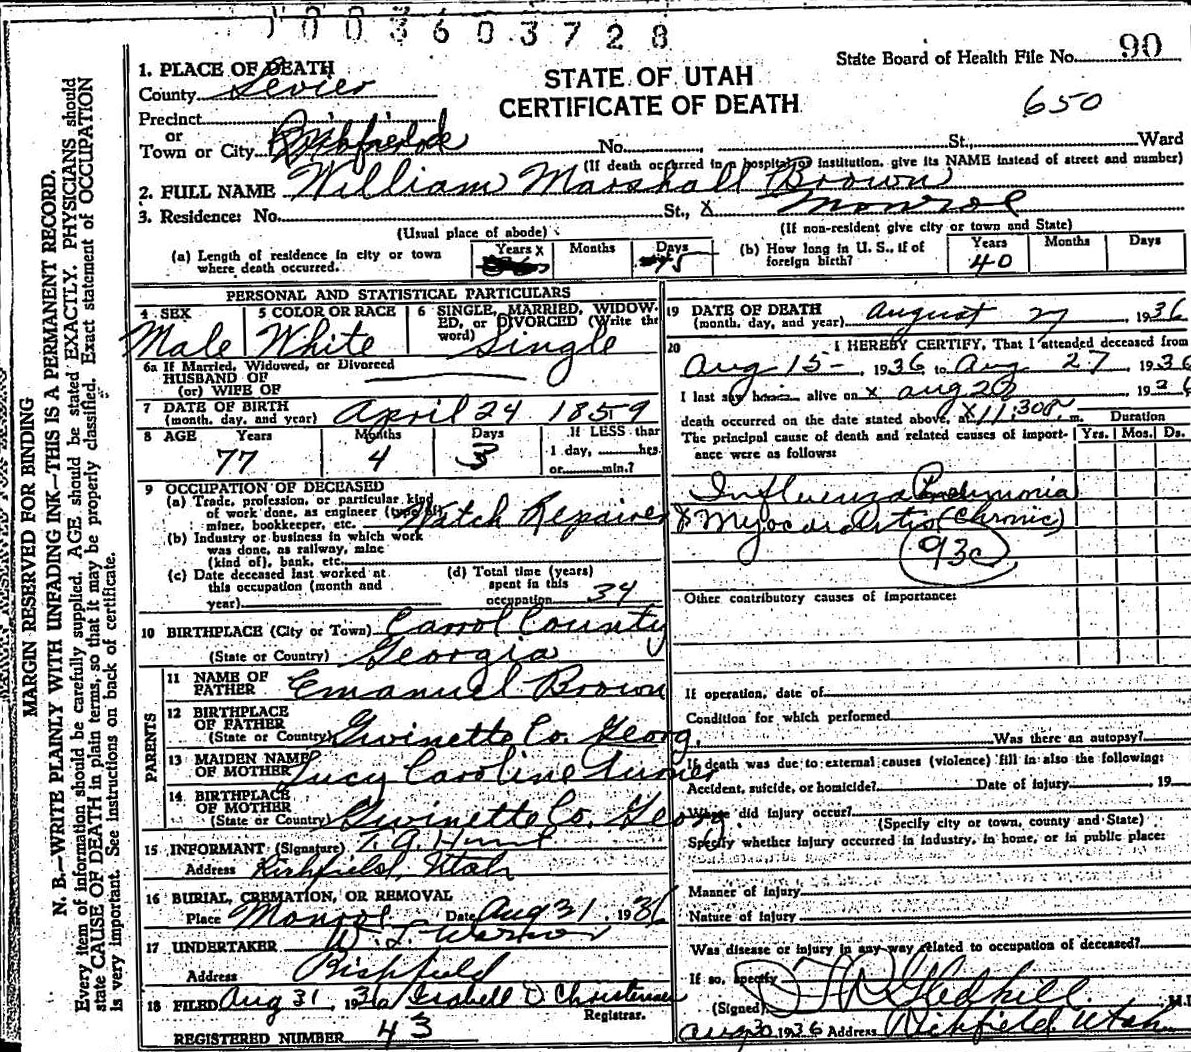 1003603728
State Board of Health File No. 90
1. PLACE OF DEATH
County Sevier
STATE OF UTAH
CERTIFICATE OF DEATH
650
Precinct
or
Town or City Richfield No. St., Ward
(If death occurred in a hospital or institution, give its NAME instead of street and number)
2. FULL NAME William Marshall Brown
3. Residence: No. St., X Monroe
(Usual place of abode)
(If non-resident give city or town and State)
(a) Length of residence in city or town where death occurred.
Years X Months Days
15
(b) How long in U. S., if of foreign birth?
Years Months Days
40
PERSONAL AND STATISTICAL PARTICULARS
4 SEX
Male
5 COLOR OR RACE
White
6 SINGLE, MARRIED, WIDOWED, or DIVORCED (Write the word)
Single
6a If Married, Widowed, or Divorced
HUSBAND OF
(or) WIFE OF
7 DATE OF BIRTH
(month, day, and year) April 24 1859
8 AGE Years Months Days
77 4 3
If LESS than
1 day, hrs.
or min.?
9 OCCUPATION OF DECEASED
(a) Trade, profession, or particular kind
of work done, as engineer (type of),
miner, bookkeeper, etc. Watch Repairer
(b) Industry or business in which work
was done, as railway, mine
(kind of), bank, etc.
(c) Date deceased last worked at
this occupation (month and
year)
(d) Total time (years)
spent in this
occupation 34
10 BIRTHPLACE (City or Town) Carrol County
(State or Country) Georgia
PARENTS
11 NAME OF
FATHER Emanuel Brown
12 BIRTHPLACE
OF FATHER
(State or Country) Gwinette Co. Georg.
13 MAIDEN NAME
OF MOTHER Lucy Caroline Turner
14 BIRTHPLACE
OF MOTHER
(State or Country) Gwinette Co. Georg.
15 INFORMANT (Signature) T. G. Hunt
Address Richfield, Utah
16 BURIAL, CREMATION, OR REMOVAL
Place Monroe Date Aug 31, 1936
17 UNDERTAKER W. L. Warner
Address Richfield
18 FILED Aug 31 1936 Isabell D Christensen
Registrar.
REGISTERED NUMBER 43
19 DATE OF DEATH
(month, day, and year) August 27, 1936
20 I HEREBY CERTIFY, That I attended deceased from
Aug 15-, 1936 to Aug 27, 1936
I last saw him alive on X aug 1936
death occurred on the date stated above, at X 11:30 P. m.
The principal cause of death and related causes of importance were as follows:
Duration
Yrs. Mos. Ds.
Influenza Pneumonia
& Myocarditis (Chronic)
93c
Other contributory causes of importance:
If operation, date of
Condition for which performed
Was there an autopsy?
If death was due to external causes (violence) fill in also the following:
Accident, suicide, or homicide? Date of injury 19
Where did injury occur?
(Specify city or town, county and State)
Specify whether injury occurred in industry, in home, or in public place:
Manner of Injury
Nature of Injury
Was disease or injury in any way related to occupation of deceased?
If so, specify
(Signed) Gledhill M.D.
Aug 30 1936 Address Richfield, Utah
MARGIN RESERVED FOR BINDING
N. B.—WRITE PLAINLY WITH UNFADING INK—THIS IS A PERMANENT RECORD.
Every item of information should be carefully supplied. AGE should be stated EXACTLY. PHYSICIANS should
state CAUSE OF DEATH in plain terms, so that it may be properly classified. Exact statement of OCCUPATION
is very important. See instructions on back of certificate.